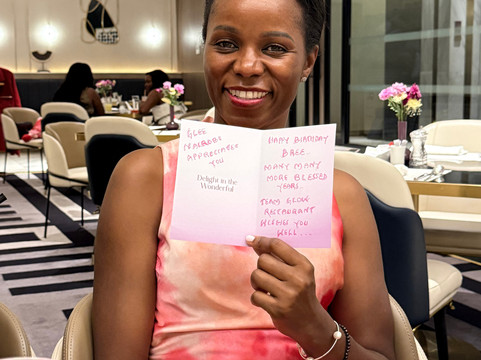 GLEE
NAIROBI
APPRECIATES
YOU
Delight in the
Wonderful
HAPPY BIRTHDAY
BREE.
MANY MANY
MORE BLESSED
YEARS.
TEAM GLOW
RESTAURANT
WISHES YOU
WELL...